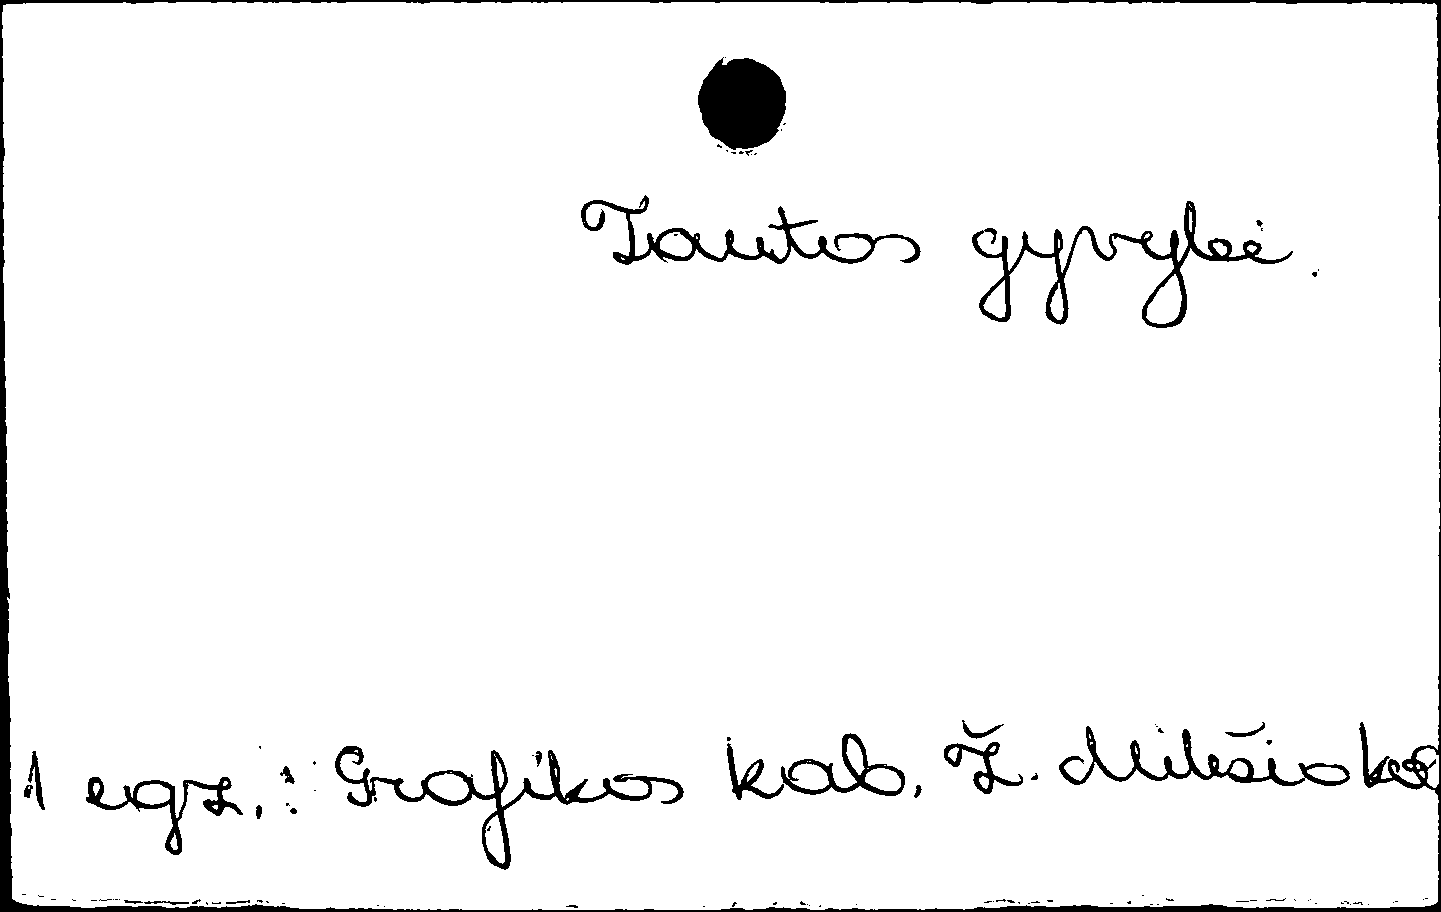 Tautos gyvybė.
1 egz.: Grafikos kab. Ž. Mikšiokos